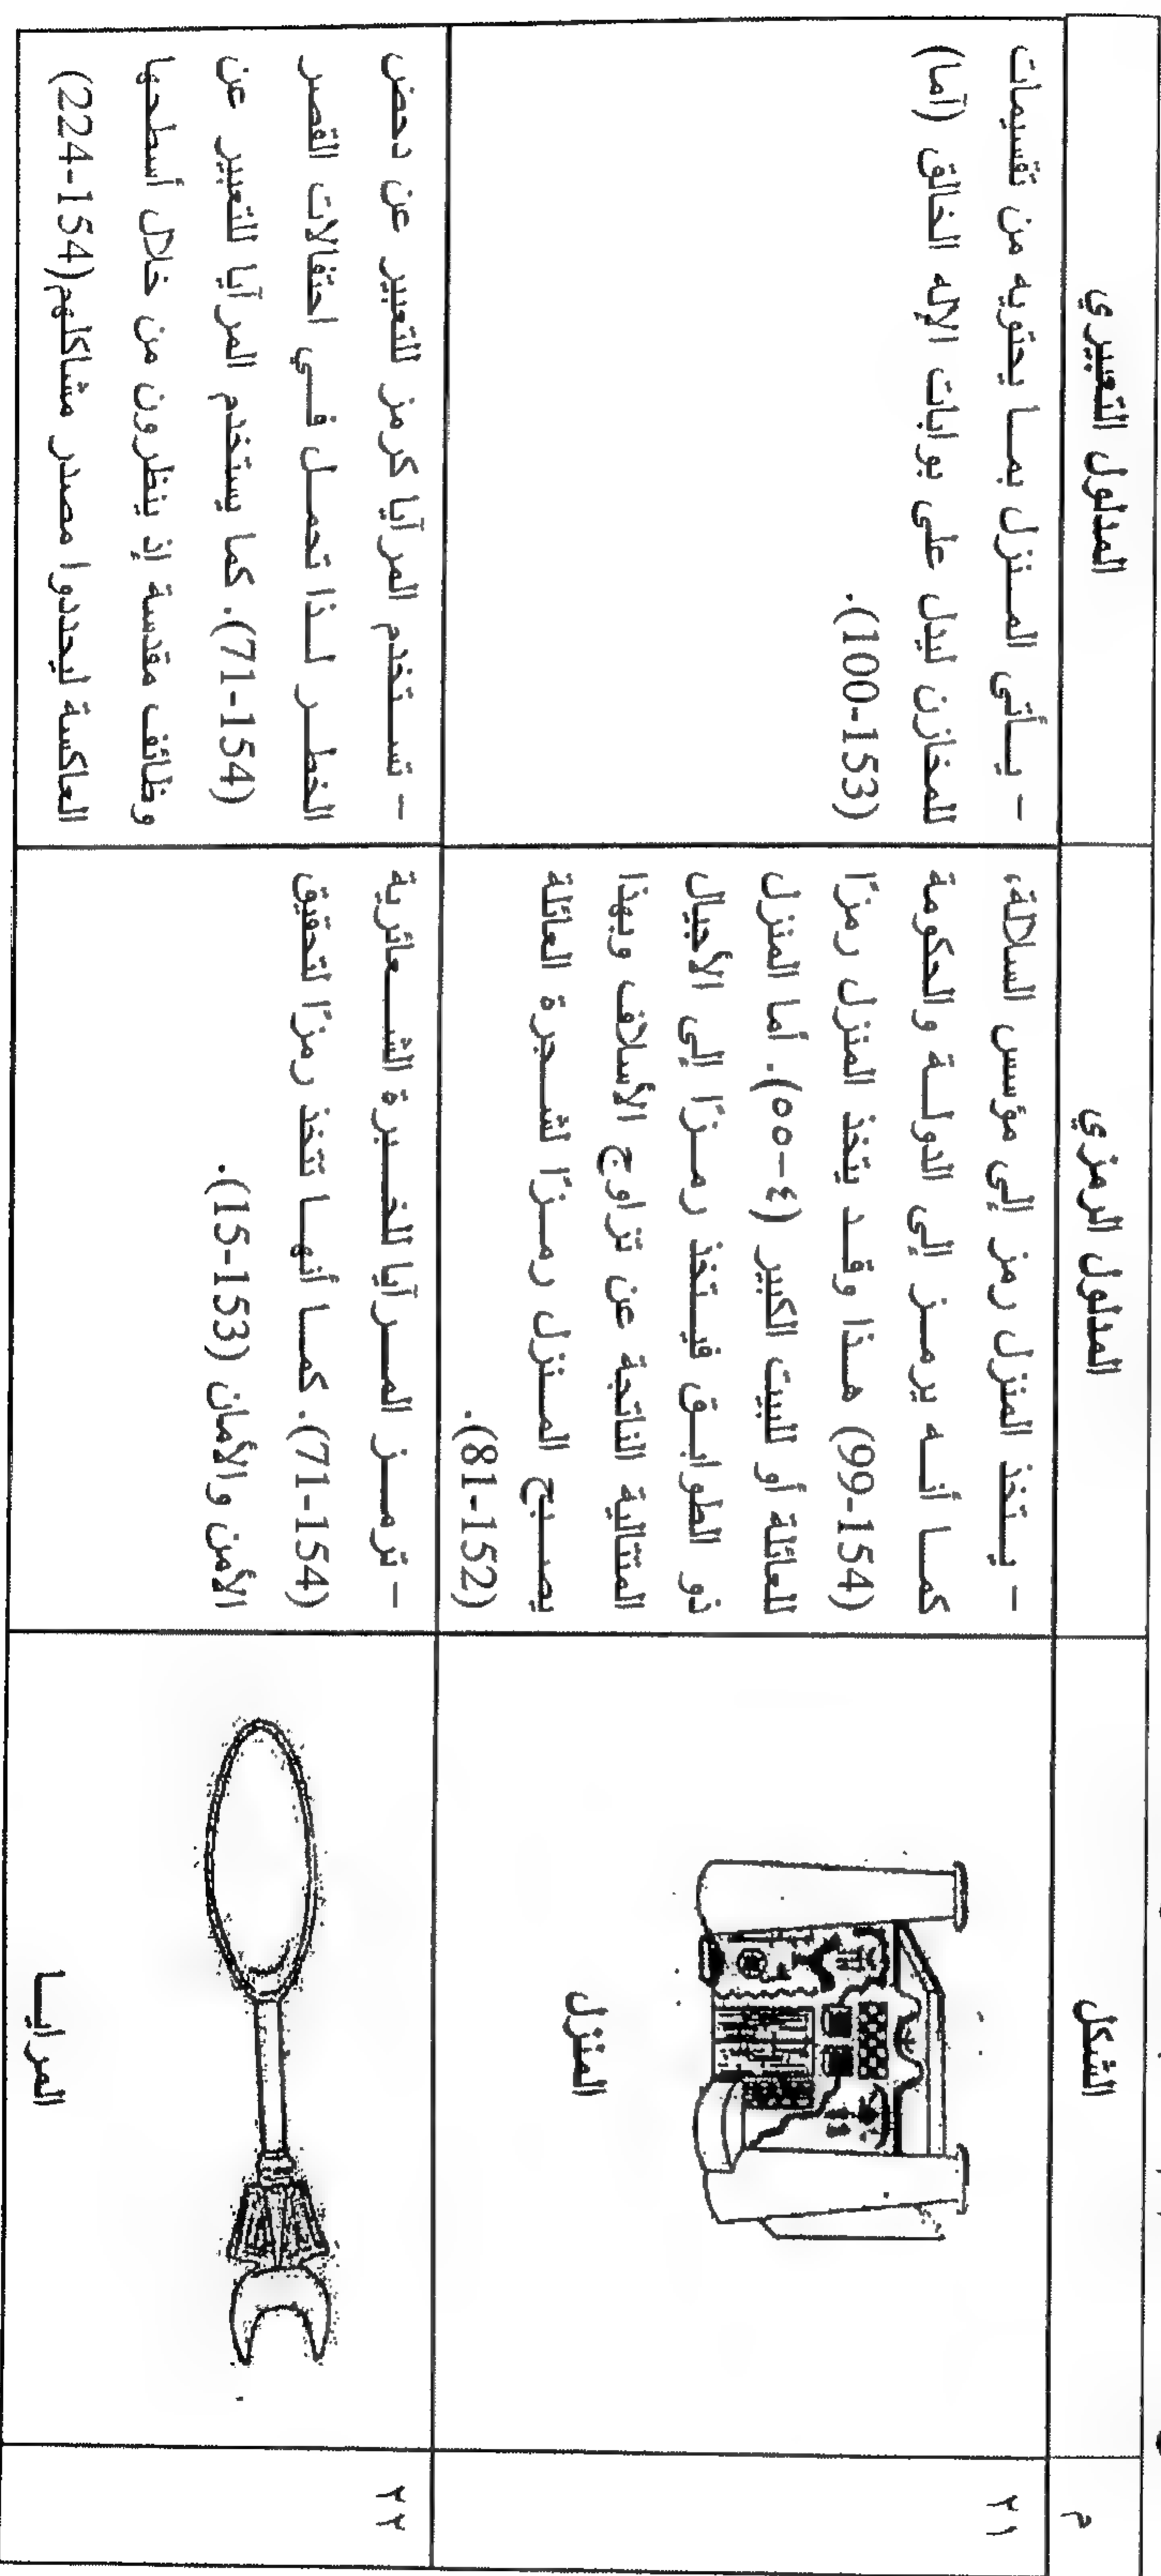 م
الشكل
المدلول الرمزي
المدلول التعبيري
٢١
المنزل
- يتخذ المنزل رمز إلى مؤسس السلالة،
كما أنه يرمز إلى الدولة والحكومة
(99-154) هذا وقد يتخذ المنزل رمزًا
للعائلة أو للبيت الكبير (٤-٥٥). أما المنزل
ذو الطوابق فيتخذ رمزًا إلى الأجيال
المتتالية الناتجة عن تزاوج الأسلاف وبهذا
يصبح المنزل رمزًا لشجرة العائلة
(81-152).
- يأتي المنزل بما يحتويه من تقسيمات
للمخازن ليدل على بوابات الإله الخالق (آما)
(100-153).
٢٢
المرايا
- ترمز المرايا للخبرة الشعائرية
(71-154). كما أنها تتخذ رمزًا لتحقيق
الأمن والأمان (15-153).
- تستخدم المرايا كرمز للتعبير عن دحض
الخطر لذا تحمل في احتفالات القصر
(71-154). كما يستخدم المرايا للتعبير عن
وظائف مقدسة إذ ينظرون من خلال أسطحها
العاكسة ليحددوا مصدر مشاكلهم(224-154)